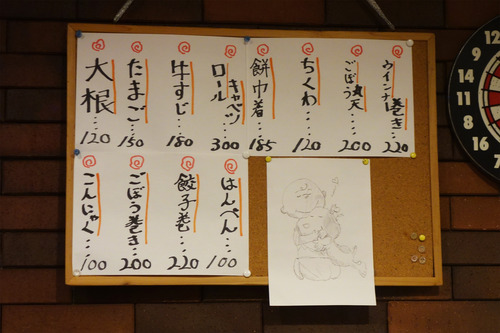 大根...120
たまご...150
牛すじ...180
ロールキャベツ...300
餅巾着...185
ちくわ...120
ごぼう丸天...200
ウインナー巻き...220
こんにゃく...100
ごぼう巻き...200
餃子巻...220
はんぺん...100
12
5
9
14
11
8
16